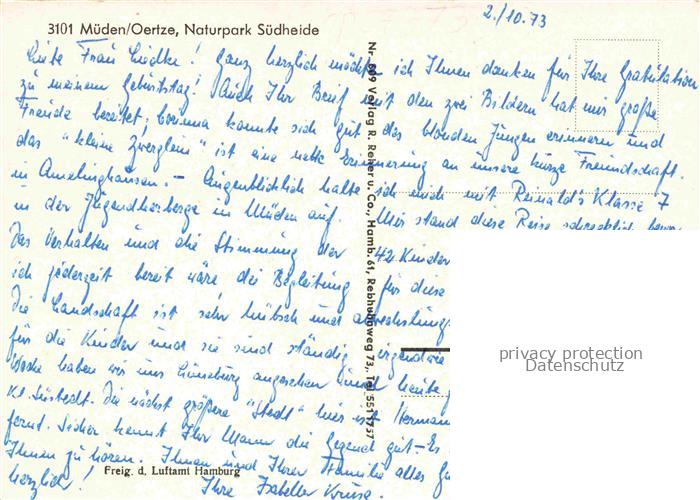 2./10.73
3101 Müden/Oertze, Naturpark Südheide
Liebe Frau Liedke! Ganz herzlich möchte ich Ihnen danken für Ihre Gratulation
zu meinem Geburtstag! Auch Ihr Brief mit den zwei Bildern hat mir große
Freude bereitet; Corinna konnte sich gut des blonden Jungen erinnern und
das "kleine Zwerglein" ist eine nette Erinnerung an unsere kurze Freundschaft.
in Amelinghausen. - Augenblicklich halte ich mich mit Reinald's Klasse 7
in der Jugendherberge in Müden auf. Mir stand diese Reise schrecklich bevor
Das Verhalten und die Stimmung der 42 Kinder
ich jederzeit bereit wäre die Begleitung für diese
Die Landschaft ist sehr hübsch und abwechslungs
für die Kinder und sie sind ständig irgendwie
Woche haben wir uns Lüneburg angesehen und heute
Kl. Süstedt. Die nächst größere "Stadt" hier ist Herman
fernt. Sicher kennt Ihr Mann die Gegend gut – Es
Ihnen zu hören. Ihnen und Ihrer Familie alles Gu
herzlich! Ihre Isabella Kruse.
Freig. d. Luftamt Hamburg
Nr. 609 Verlag R. Reher u. Co., Hamb. 61, Rebhuhnweg 73, Tel. 5511757
privacy protection
Datenschutz